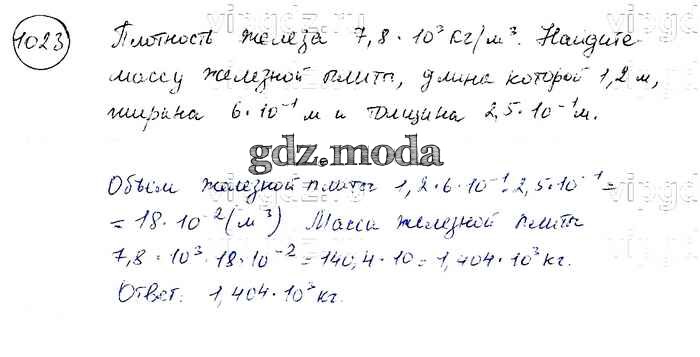 1023
Плотность железа 7,8 · 10³ кг/м³. Найдите
массу железной плиты, длина которой 1,2 м,
ширина 6 · 10⁻¹ м и толщина 2,5 · 10⁻¹ м.
gdz.moda
Объём железной плиты 1,2 · 6 · 10⁻¹ · 2,5 · 10⁻¹ =
= 18 · 10⁻² (м³) Масса железной плиты
7,8 · 10³ · 18 · 10⁻² = 140,4 · 10 = 1,404 · 10³ кг.
Ответ: 1,404 · 10³ кг.